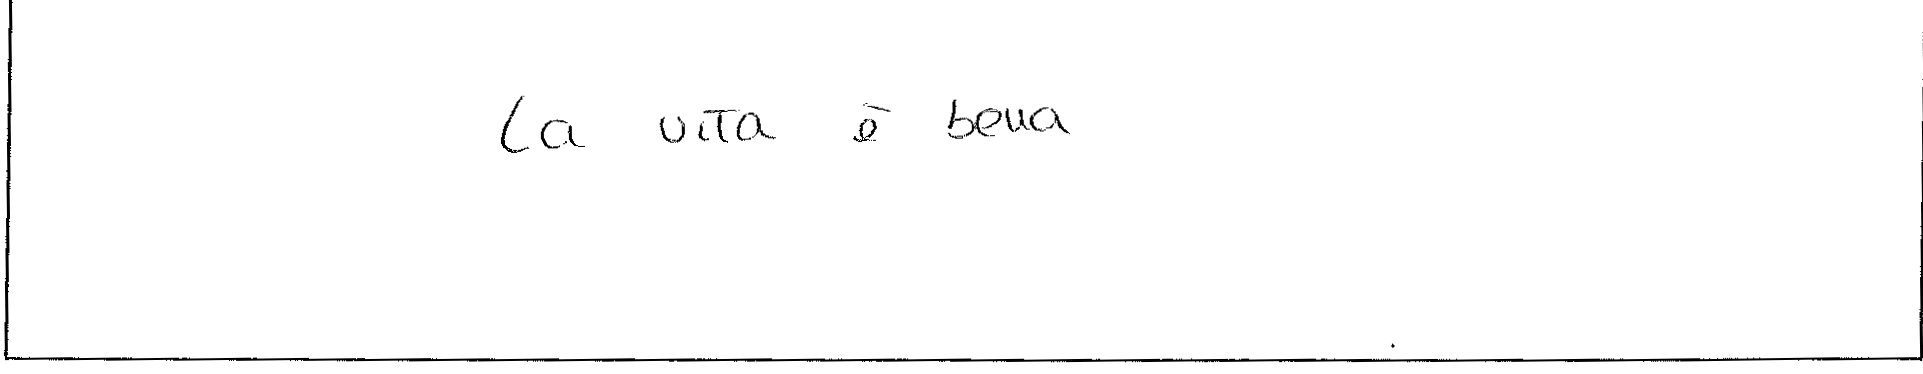 La vita è bella